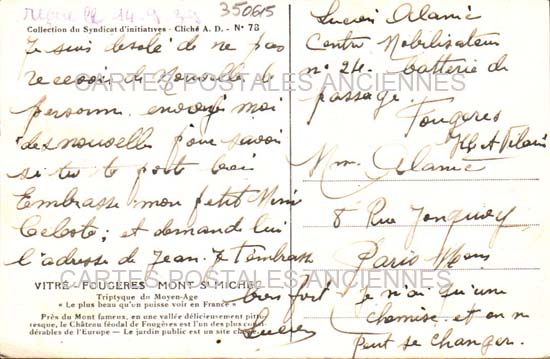 reçue le 14-9-39
350615
Collection du Syndicat d'initiatives - Cliché A. D. - N° 78
Je suis desolé de ne pas
recevoir de nouvelles de
personne. envoyés moi
des nouvelles pour savoir
si tu te porte bien
Embrasse mon petit Mimi
Celeste; et demande lui
l'adresse de Jean. Je t'embrasse
bien fort
Lucien
VITRÉ - FOUGÈRES - MONT ST MICHEL
Triptyque du Moyen-Age
« Le plus beau qu'on puisse voir en France »
Près du Mont fameux, en une vallée délicieusement pitto-
resque, le Château féodal de Fougères est l'un des plus consi-
dérables de l'Europe — Le jardin public est un site
Lucien Alanic
Centre Mobilisateur
n° 24. batterie de
passage.
Fougeres
Ille et Vilaine
Mme Alanic
8 Rue
Paris
Je n'ai qu'une
chemise et on ne
peut se changer.
CARTES POSTALES ANCIENNES
CARTES POSTALES ANCIENNES